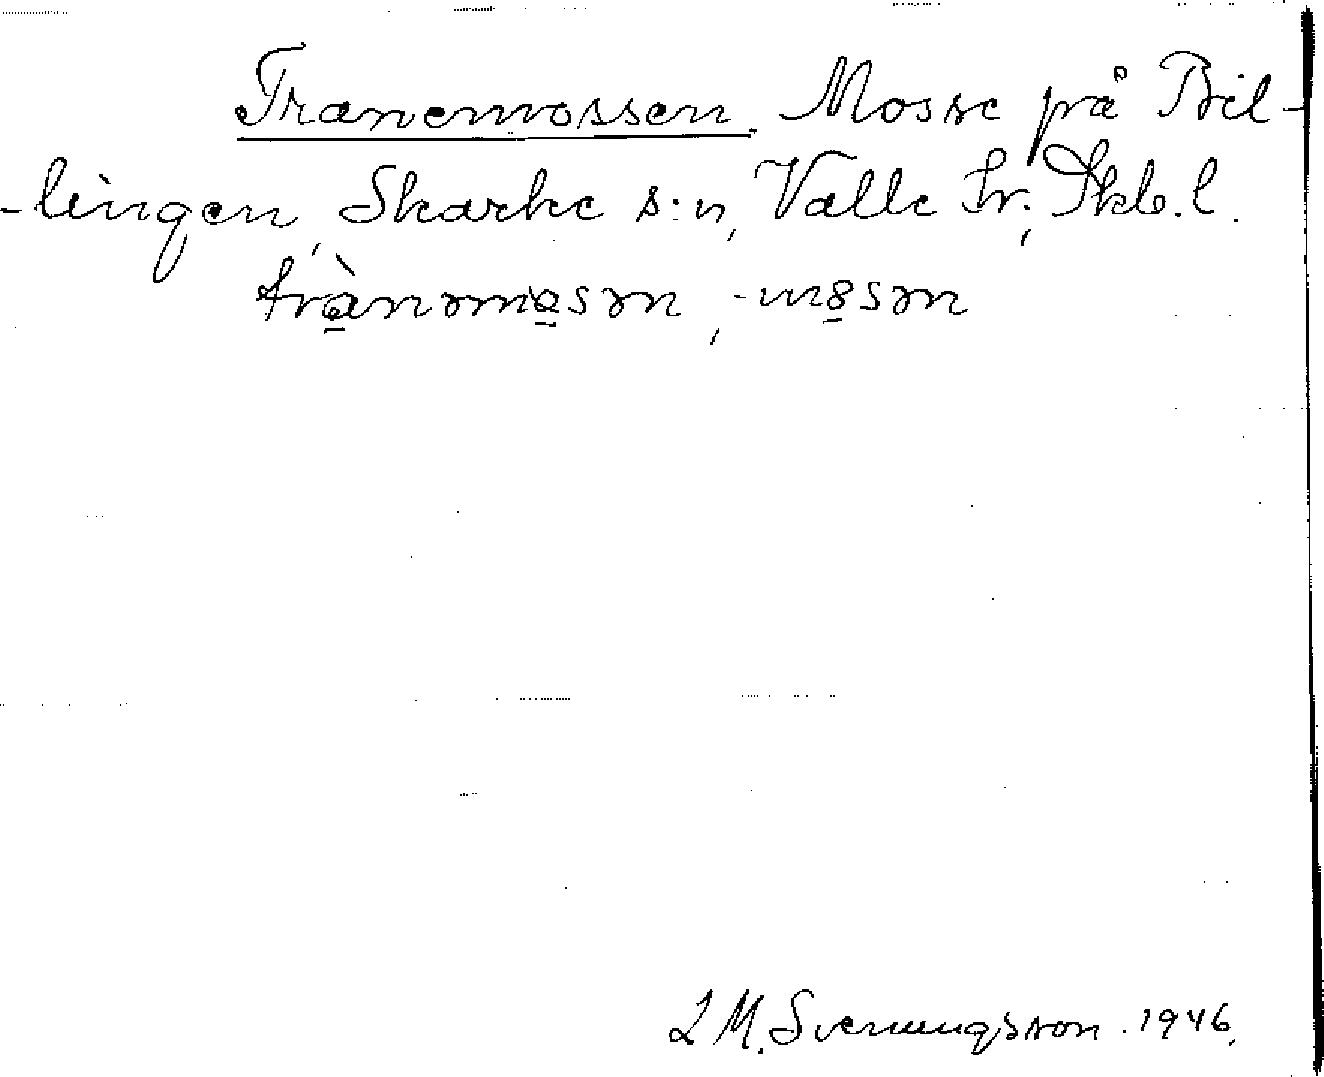 Tranemossen. Mosse på Bil-
-lingen, Skarke s:n, Valle hr., Skb.l.
trànəmo̱sən, -mo̱sən
L M. Svenungsson. 1946.